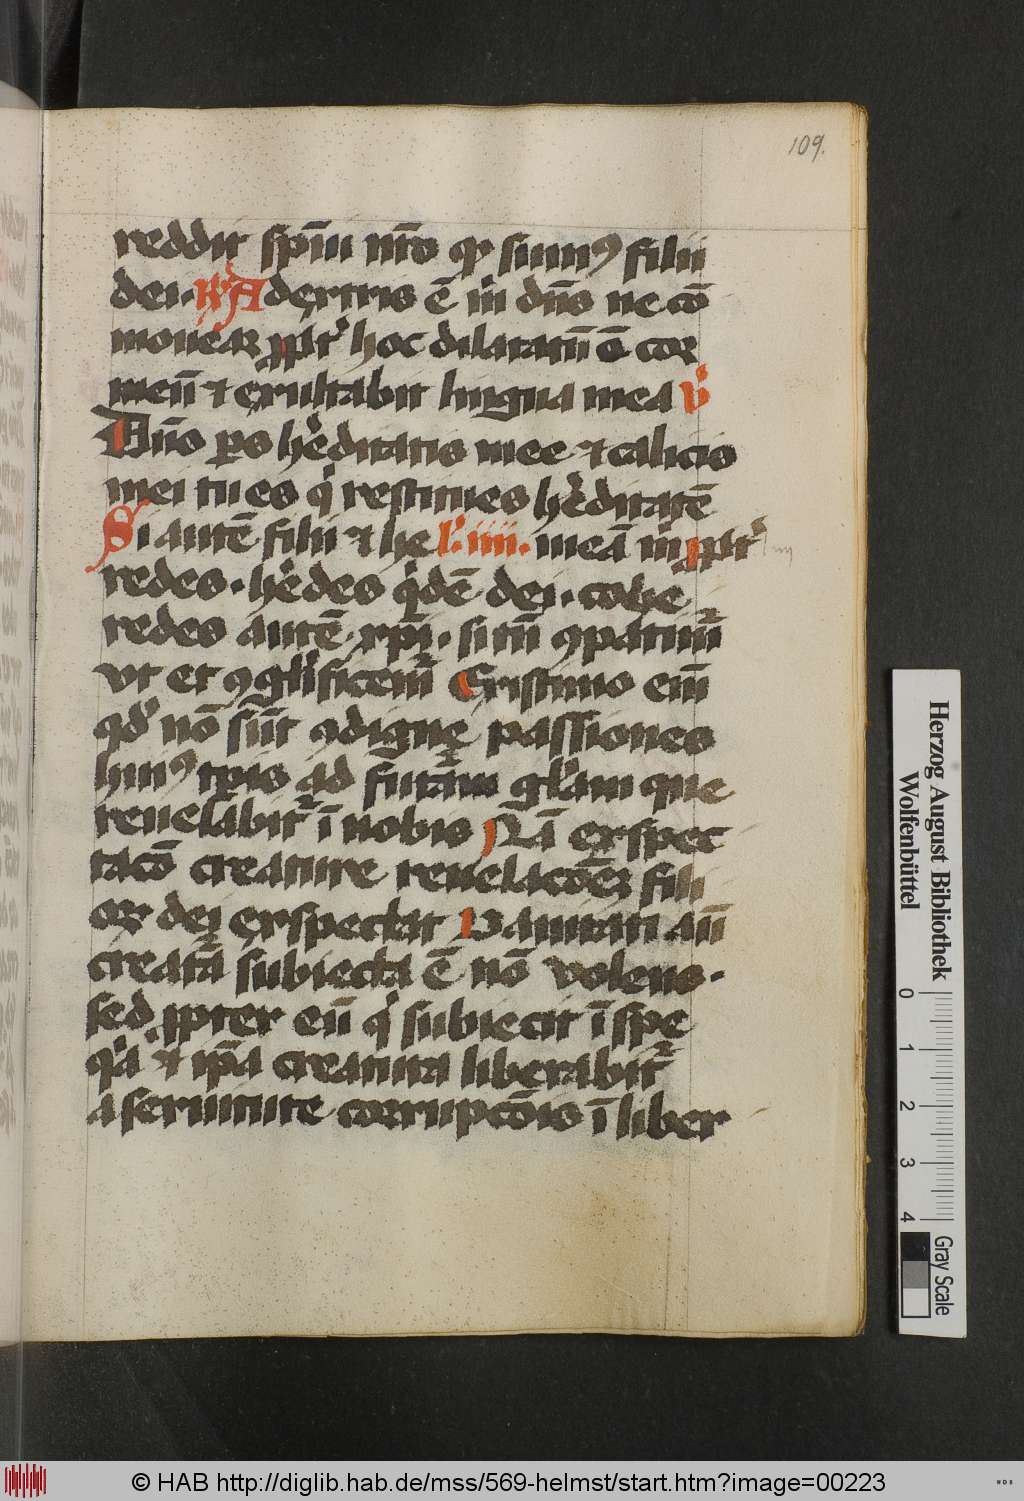 109.
reddit spīui nr̄o qꝛ sumꝰ filii
dei. R̸ A dextris ē m̍ dn̄s ne cō
mouear ꝓpt᷑ hoc dilatatū ē cor
meū ⁊ exultabit lingua mea v̍
Dn̄s ꝑs h̍editatis mee ⁊ calicis
mei tu es q̍ restitues h̍editatē
Si autē filii ⁊ he l̍. iiii. meā m̍ ꝓpt᷑
redes. h̍edes q̍dē dei. cohe
redes autē xp̄i. si tn̄ ꝯpatim᷑
vt et ꝯgl̍ificem᷑ Existimo eīm
qd̍ nō su̅t ꝯdigne passiones
huiꝰ tp̄is ad fut᷑am gl̍am que
reuelabit᷑ ī nobis Nā exspec
tacō creature reuelacōeꝫ fili
oꝝ dei exspectat Vanitati aū
creat᷑a subiecta ē nō volens.
sed ꝓpter eū q̍ subiecit ī spe
q̍a ⁊ ip̄a creatura liberabit᷑
a seruitute corrupcōis ī liber
Herzog August Bibliothek
Wolfenbüttel
0 1 2 3 4
Gray Scale
© HAB http://diglib.hab.de/mss/569-helmst/start.htm?image=00223